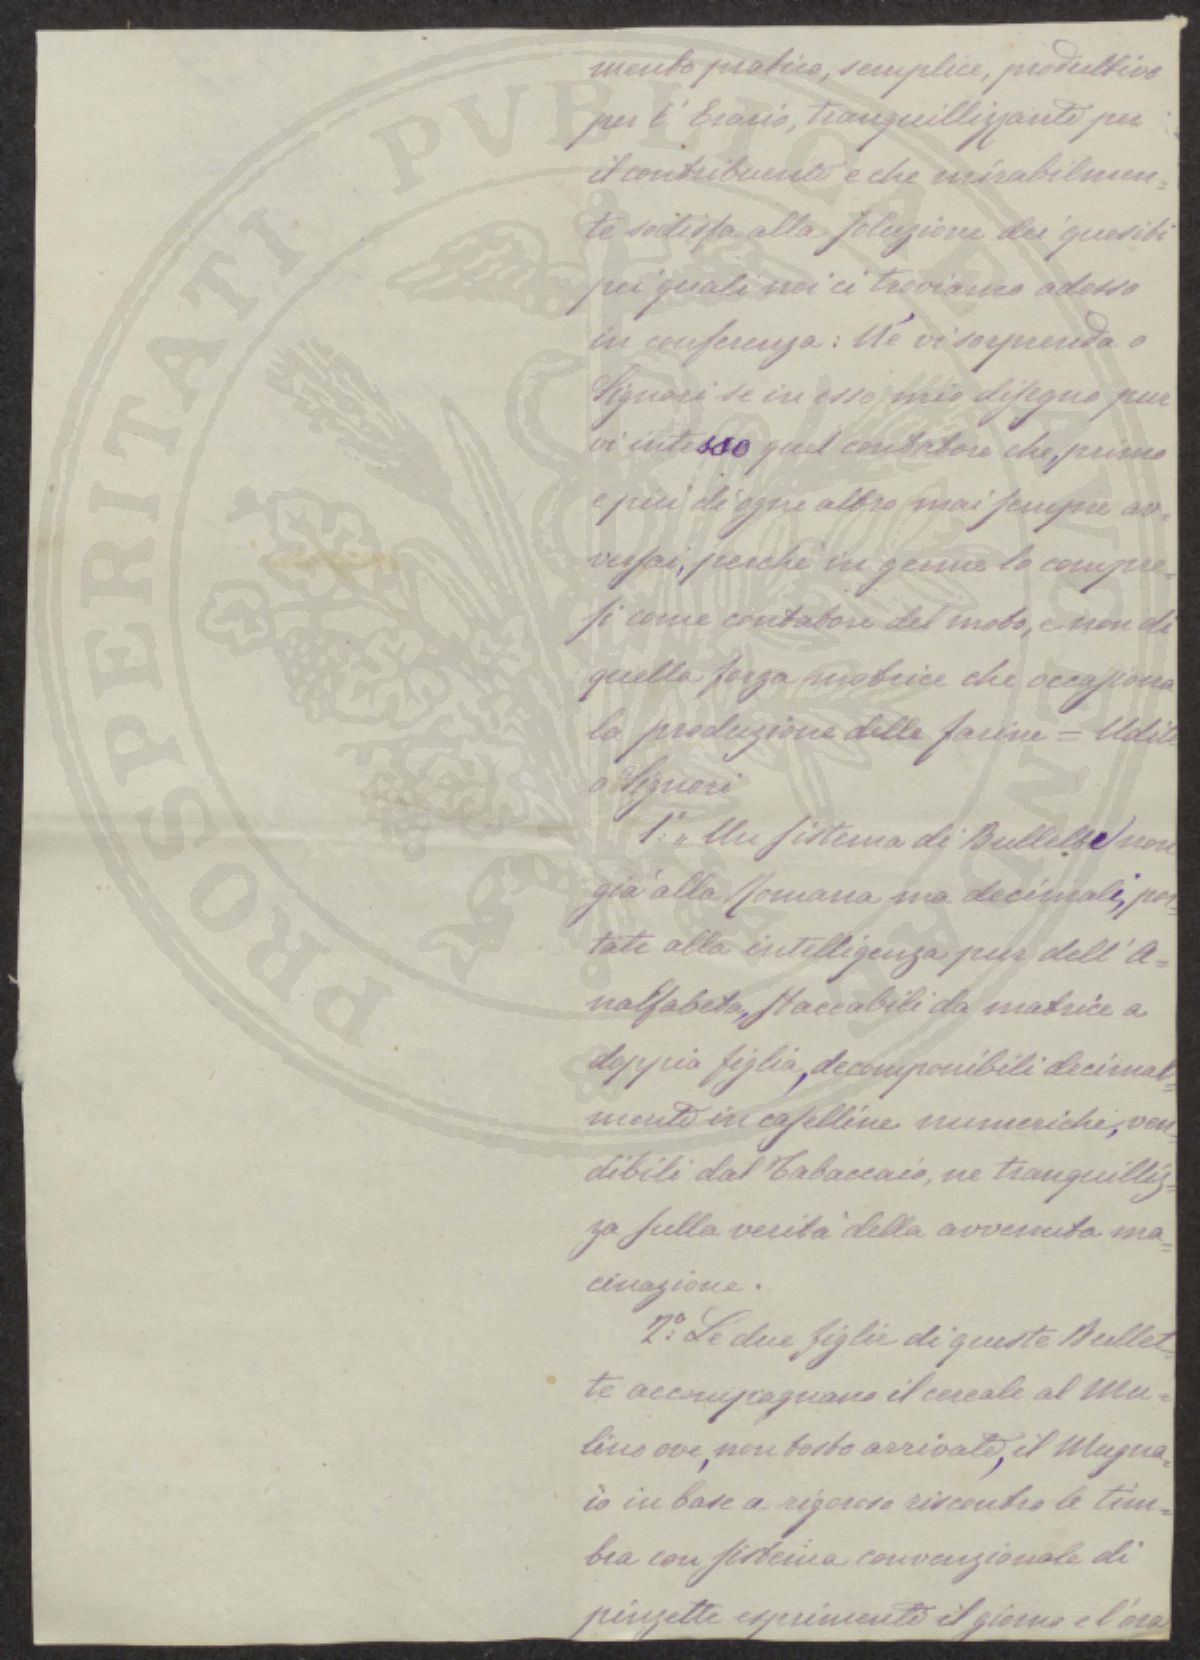 mento pratico, semplice, produttivo
per l'Erario, tranquillizzante per
il contribuente e che mirabilmen=
te sodisfa alla soluzione dei quesiti
pei quali noi ci troviamo adesso
in conferenza: Ne vi sorprenda o
Signori se in esso mio disegno pur
vi intesso quel contatore che, primo
e piu di ogni altro mai sempre av=
versai, perchè in genere lo compre=
si come contatore del moto, e non di
quella forza motrice che occasiona
la produzione delle farine = Udite
o Signori
1.° Un sistema di Bullette non
già alla Romana ma decimali, por=
tate alla intelligenza pur dell'A=
nalfabeta, staccabili da matrice a
doppia figlia, decomponibili decimal=
mente in caselline numeriche, ven=
dibili dal Tabaccaio, ne tranquilliz=
za sulla verità della avvenuta ma=
cinazione.
2.° Le due figlie di queste Bullet=
te accompagnano il cereale al Mu=
lino ove, non tosto arrivate, il Mugna=
io in base a rigoroso riscontro le tim=
bra con sistema convenzionale di
pinzette esprimente il giorno e l'ora
PROSPERITATI PVBLICAE